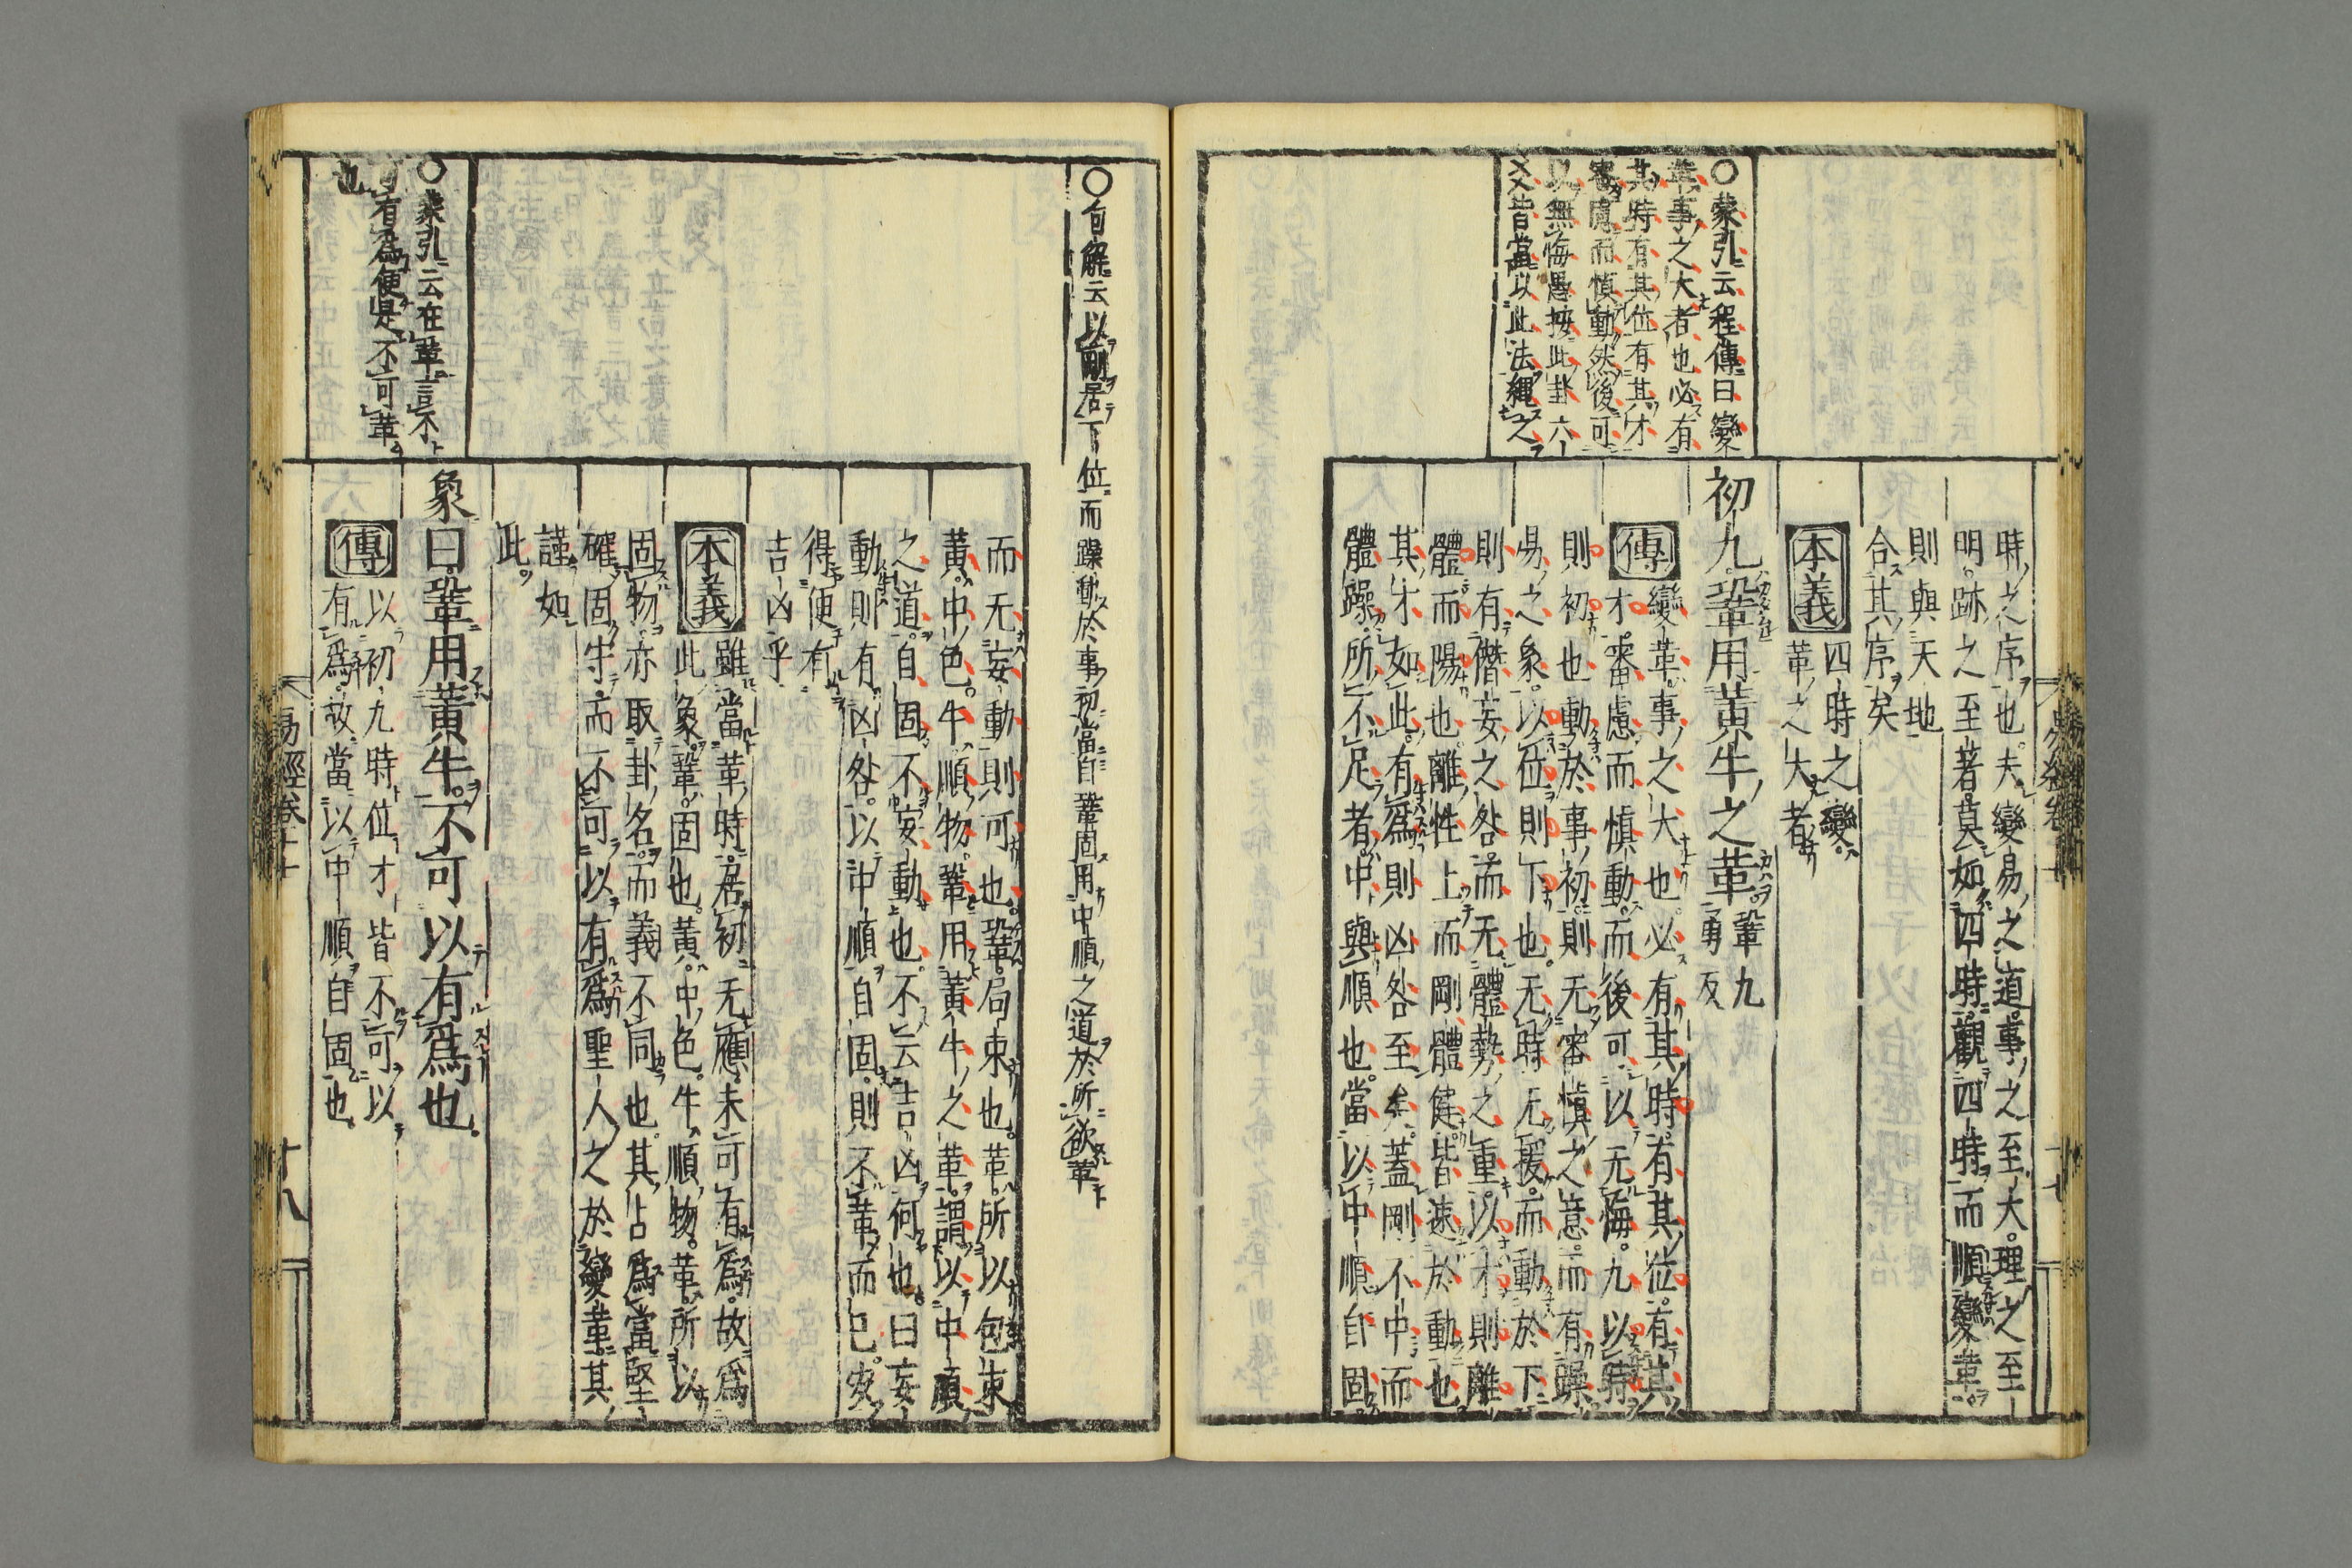 時之序也夫變易之道事之至大理之至
明跡之至著莫如四時觀四時而順變革
則與天地
合其序矣
本義
四時之變
革之大者
初九鞏用黃牛之革
鞏九
勇反
傳
變革事之大也必有其時有其位有其
才審慮而慎動而後可以无悔九以時
則初也動於事初則无審慎之意而有躁
易之象以位則下也无時无援而動於下
則有僭妄之咎而无體勢之重以才則離
體而陽也離性上而剛體健皆速於動也
其才如此有爲則凶咎至矣蓋剛不中而
體躁所不足者中與順也當以中順自固
○蒙引云程傳曰變
革事之大者也必有
其時有其位有其才
審慮而慎動然後可
以無悔愚按此卦六
爻皆當以此法繩之
○旬解云以剛居下位而躁動於事初當自鞏固用中順之道於所欲革
而无妄動則可也鞏局束也革所以包束
黃中色牛順物鞏用黃牛之革謂以中順
之道自固不妄動也不云吉凶何也曰妄
動則有凶咎以中順自固則不革而已安
得便有
吉凶乎
本義
雖當革時居初无應未可有爲故爲
此象鞏固也黃中色牛順物革所以
固物亦取卦名而義不同也其占爲當堅
確固守而不可以有爲聖人之於變革其
謹如
此
象曰鞏用黃牛不可以有爲也
傳
以初九時位才皆不可以
有爲故當以中順自固也
○蒙引云在革言不
可有爲便是不可革
也
易經卷十一
十八